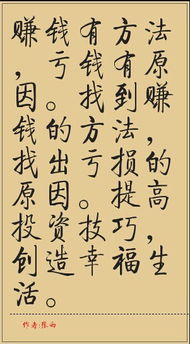 赚钱有方法
,亏钱有原
因。找到赚
钱的方法,
找出亏损的
原因。提高
投资技巧,
创造幸福生
活。
作者: